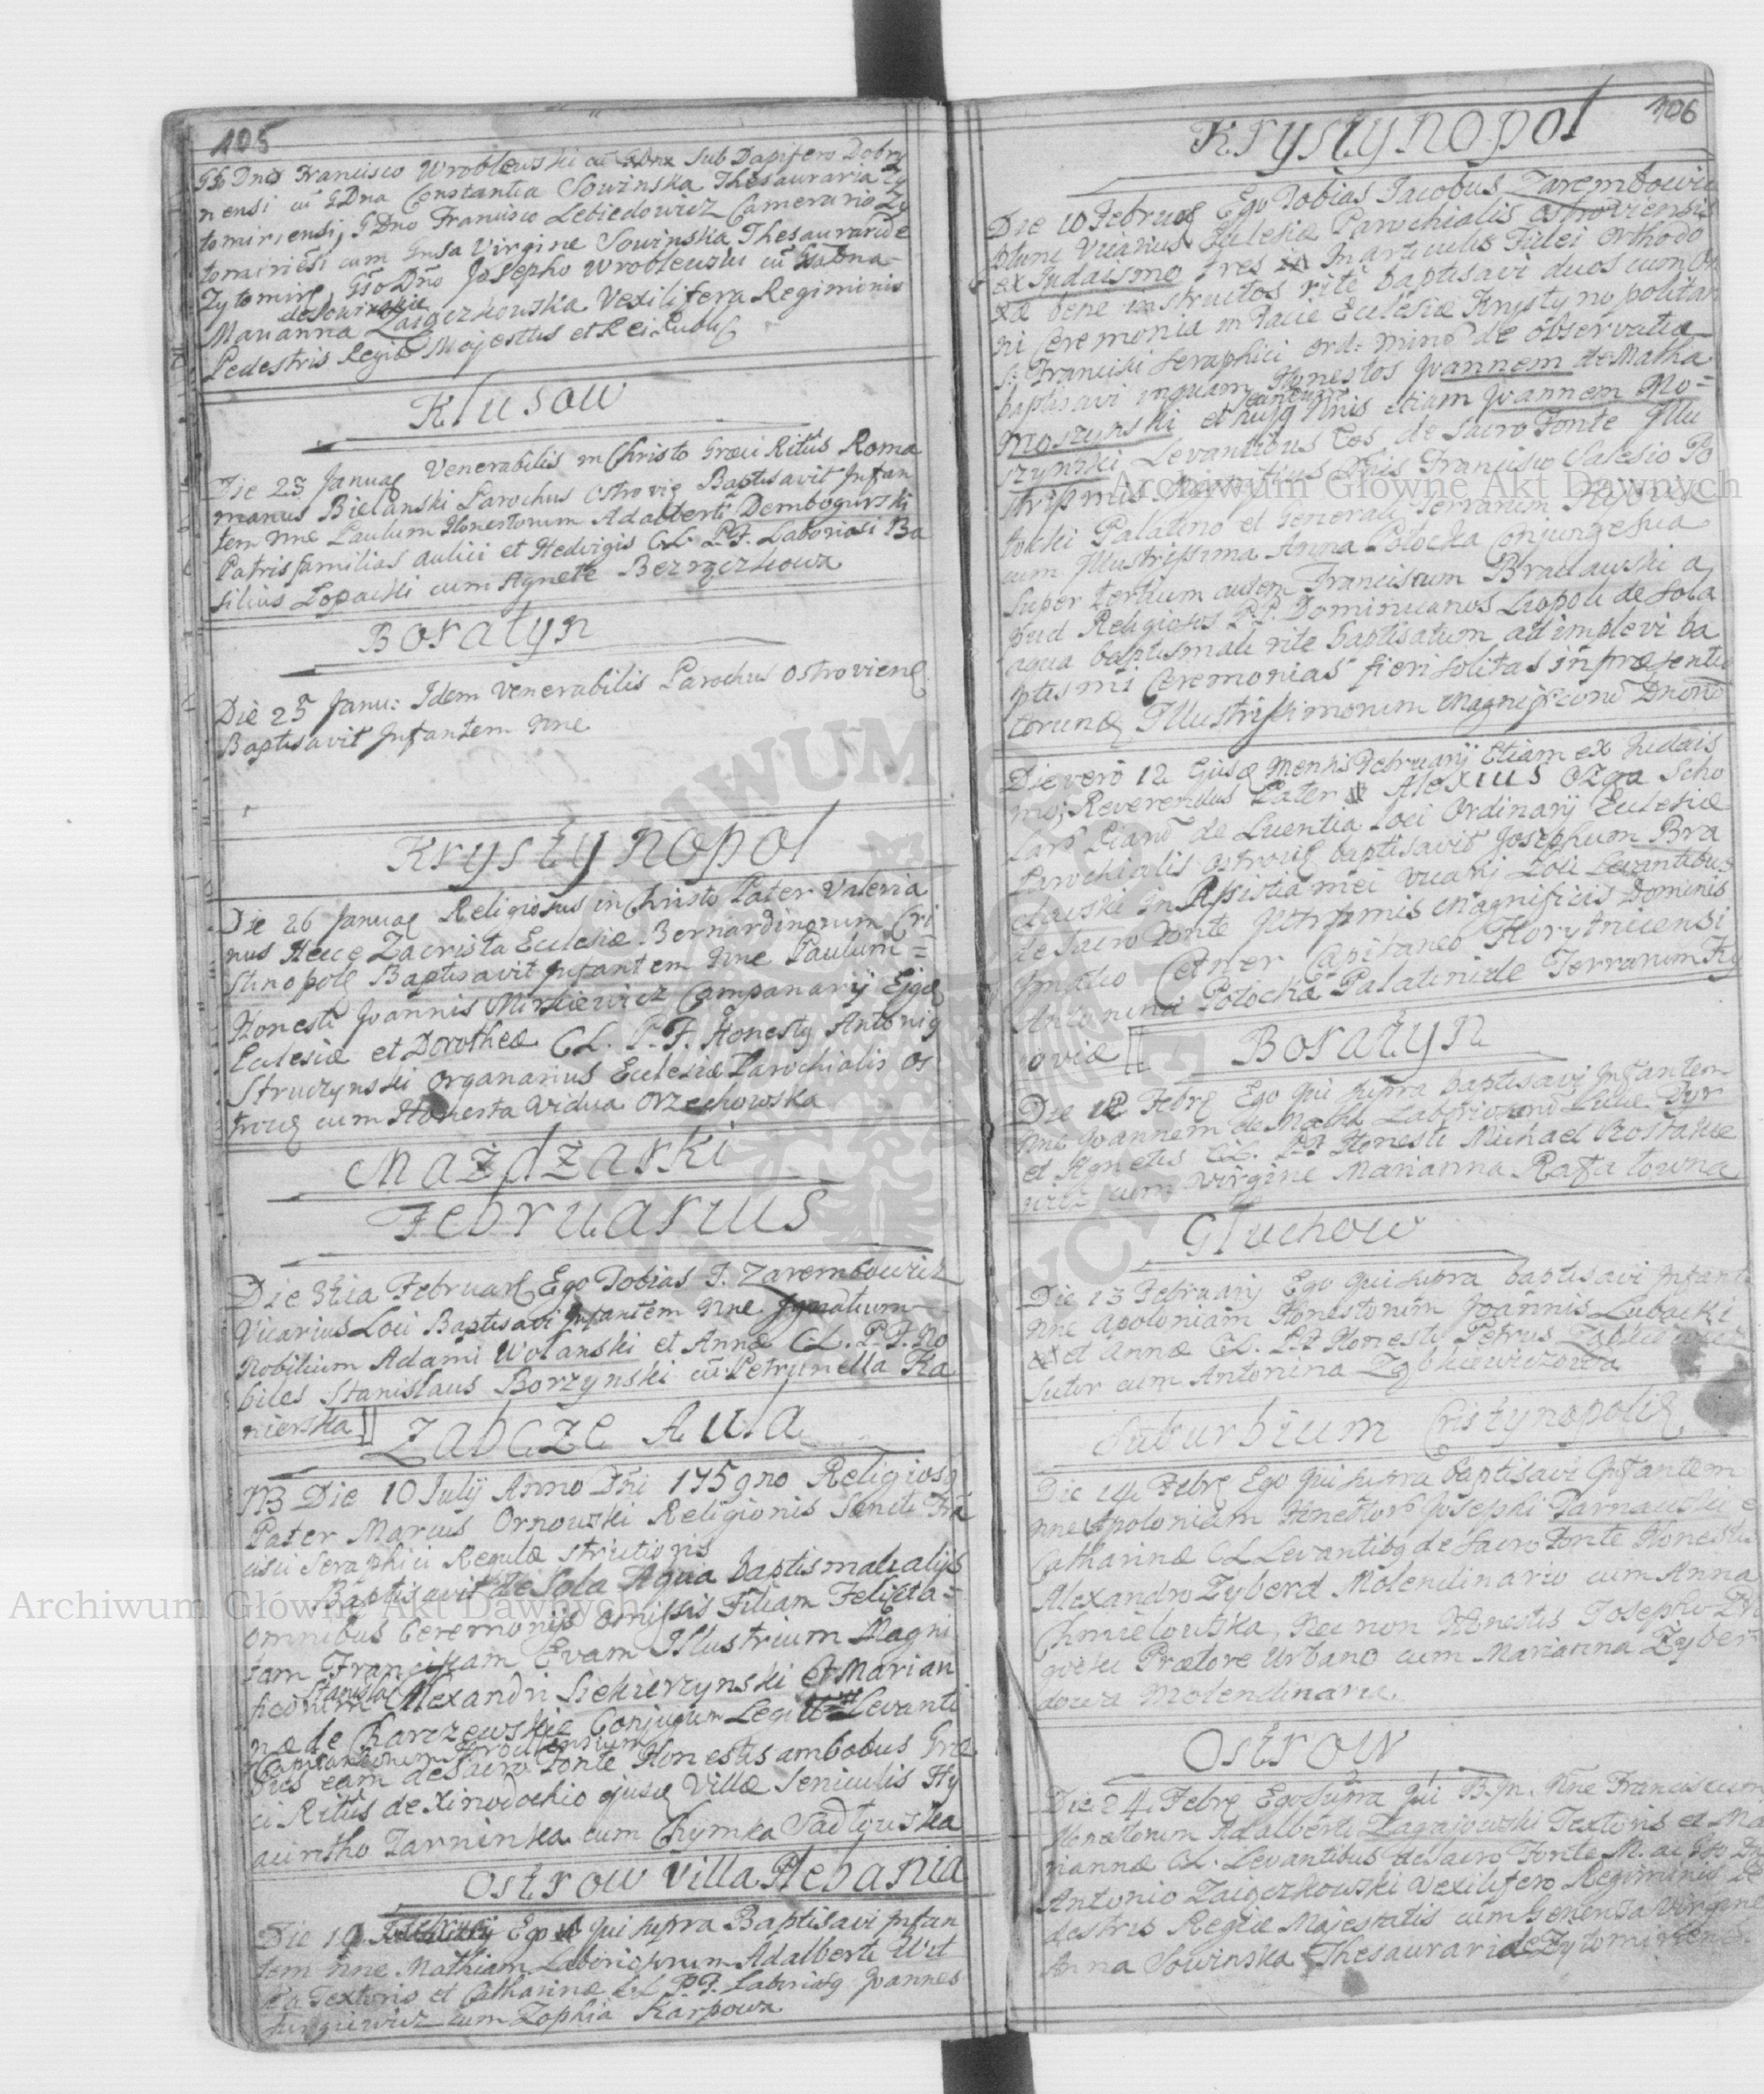 105
Gso Dno Francisco Wroblewski cū GDna Sub Dapifero Dobrzy
nensi cū GDna Constantia Sowinska Thesauraria Zy
tomiriensi, GDno Francisco Lebiedowicz Camerario Zy
tomiriensi cum Gnsa Virgine Sowinska Thesauraride
Zytomirę, Gso Dno Josepho Wroblewski cū
de Sowinskie
Marianna Zaigczkowska Vexilifera Regiminis
Pedestris Regiæ Majestatis et Rei Publię
Klusow
Die 23 Januaę Venerabilis in Christo Græci Ritus Roma
manus Bielanski Parochus Ostrovię Baptisavit Infan
tem Nne Paulum Honestorum Adalberti Dembogurski
Patris familias aulici et Hedvigis CL. P.F. Laboriosi Ba
silius Lopacki cum Agnete Bezrączkowa
Boratyn
Die 25 Janu: Idem Venerabilis Parochus Ostrovienę
Baptisavit Infantem Nne
Krystynopol
Die 26 Januaę Religiosus in Christo Pater Valeria
nus Heice Zacrista Ecclesiæ Bernardinorum Cri
stinopolę Baptisavit Infantem Nne Paulum =
Honesti Joannis Mirkiewicz Campanarij Ejgę
Eclesiæ et Dorotheæ CL. P.F. Honesty Antonig
Struczynski Organarius Eclesiæ Parochialis Os
trovię cum Honesta Vidua Orzechowska
Mażdżarki
Februarius
Die 3tia Februarę Ego Tobias J. Zarembowicz
Vicarius Loci Baptisavi Infantem Nne Ignatium
Nobilium Adami Wolanski et Annæ CL. P.F. No
biles Stanislaus Borzynski cū Petrunella Ka
nierska
Zabcze Aula
NB Die 10 Julij Anno Dni 1759no Religiosg
Pater Marcus Ornowski Religionis Sancti Fra
cisci Seraphici Regulæ strictioris
Baptisavit de Sola Aqua baptismali alijs
omnibus Ceremonijs omissis Filiam Felicita=
tam Franciscam Evam Illustrium Magni
Stanislai
ficorum Alexandri Siekierzynski et Marian
næ de Charczewskie Conjugum Legit Levanti
Capitaneorum
bus eam de Sacro Fonte Honestis ambobus Græ
ci Ritus de Xinodochio ejusę Villæ Seniculis Hy
acintho Tarninka cum Chymka Sadłowska
Ostrow Villa Plebania
Die 19 Februarij Ego qui supra Baptisavi Infan
tem Nne Mathiam Laboriosorum Adalberti Wit
ka Textoris et Catharinæ C.L. P.F. Laboriosg Joannes
cum Zophia Karpowa
106
Krystynopol
Die 10 Februaę Ego Tobias Jacobus Zarembowicz
ptunc Vicarius Eclesiæ Parochialis Ostroviensis
ex Iudaismo tres In articulis Fidei Orthodo
xæ bene instructos rite baptisavi duos cum om
ni Ceremonia in Facie Ecclesiæ Krystynopolitan
S: Francisci Seraphici Ord: Mino de Observatia
baptisavi inquam Honestos Joannem de Matha
Moszynski et hujg Nnis etiam Joannem Mo=
szynski Levantibus Eos de Sacro Fonte Illu
strissimis Magnificis Dnis Francisco Salesio Po
tocki Palatino et Generali Terrarum Kijoviæ
cum Illustrissima Anna Potocka Conjunge sua
Super tertium autem Franciscum Braclawski a
pud Religiosos P.P. Dominicanos Leopoli de Sola
aqua baptismali rite baptisatum adimplevi ba
ptismi Ceremonias fieri solitas in præsentia
eorundę Illustrissimorum Magnificorū Dnorū
Die vero 12 Ejusę Mensis Februarij Etiam ex Judais
mo, Reverendus Pater Alexius Ozga Scho
lar Piarū de Luentia Loci Ordinarij Ecclesiæ
Parochialis Ostrovię baptisavit Josephum Bra
clawski In Assistia mei Vicarij Loci Levantibus
de Sacro Fonte Illtrssimis Magnificis Dominis
Ignatio Cetner Capitaneo Korytnicensi
Antonina Potocka Palatinide Terrarum Ky
ioviæ
Boratyn
Die 12 Febrę Ego qui supra baptisavi Infantem
Nne Joannem de Matha Laboriosorū Lucæ Dyr
et Agnetis CL. P.F. Honesti Michael Rostakie
wicz cum Virgine Marianna Rafałowna
Gluchow
Die 13 February Ego qui supra baptisavi Infante
Nne Apoloniam Honestorum Joannis Lubacki
et Annæ CL. P.F. Honesti Petrus Ząbkiewicz
Sutor cum Antonina Ząbkiewiczowa
Suburbium Cristynopolię
Die 14 Febrę Ego qui supra baptisavi Infantem
Nne Apoloniam Honestorū Josephi Tarnawski e
Catharinæ CL Levantibg de Sacro Fonte Honestis
Alexandro Zyberd Molendinario cum Anna
Chmielowska, Nec non Honestis Josepho
Prætore Urbano cum Marianna Zyber
dowa Molendinaria
Ostrow
Die 24 Febrę Ego Supra qui B. In. Nne Franciscum
Honestorum Adalberti Zagajowski Textoris et Ma
riannæ CL. Levantibus de Sacro Fonte M. ac Gso Dn
Antonio Zaigczkowski Vexilifero Regiminis Pe
destris Regiæ Majestatis cum Generosa Virgine
Anna Sowinska Thesauraride Zytomiriensi
Archiwum Główne Akt Dawnych
Archiwum Główne Akt Dawnych